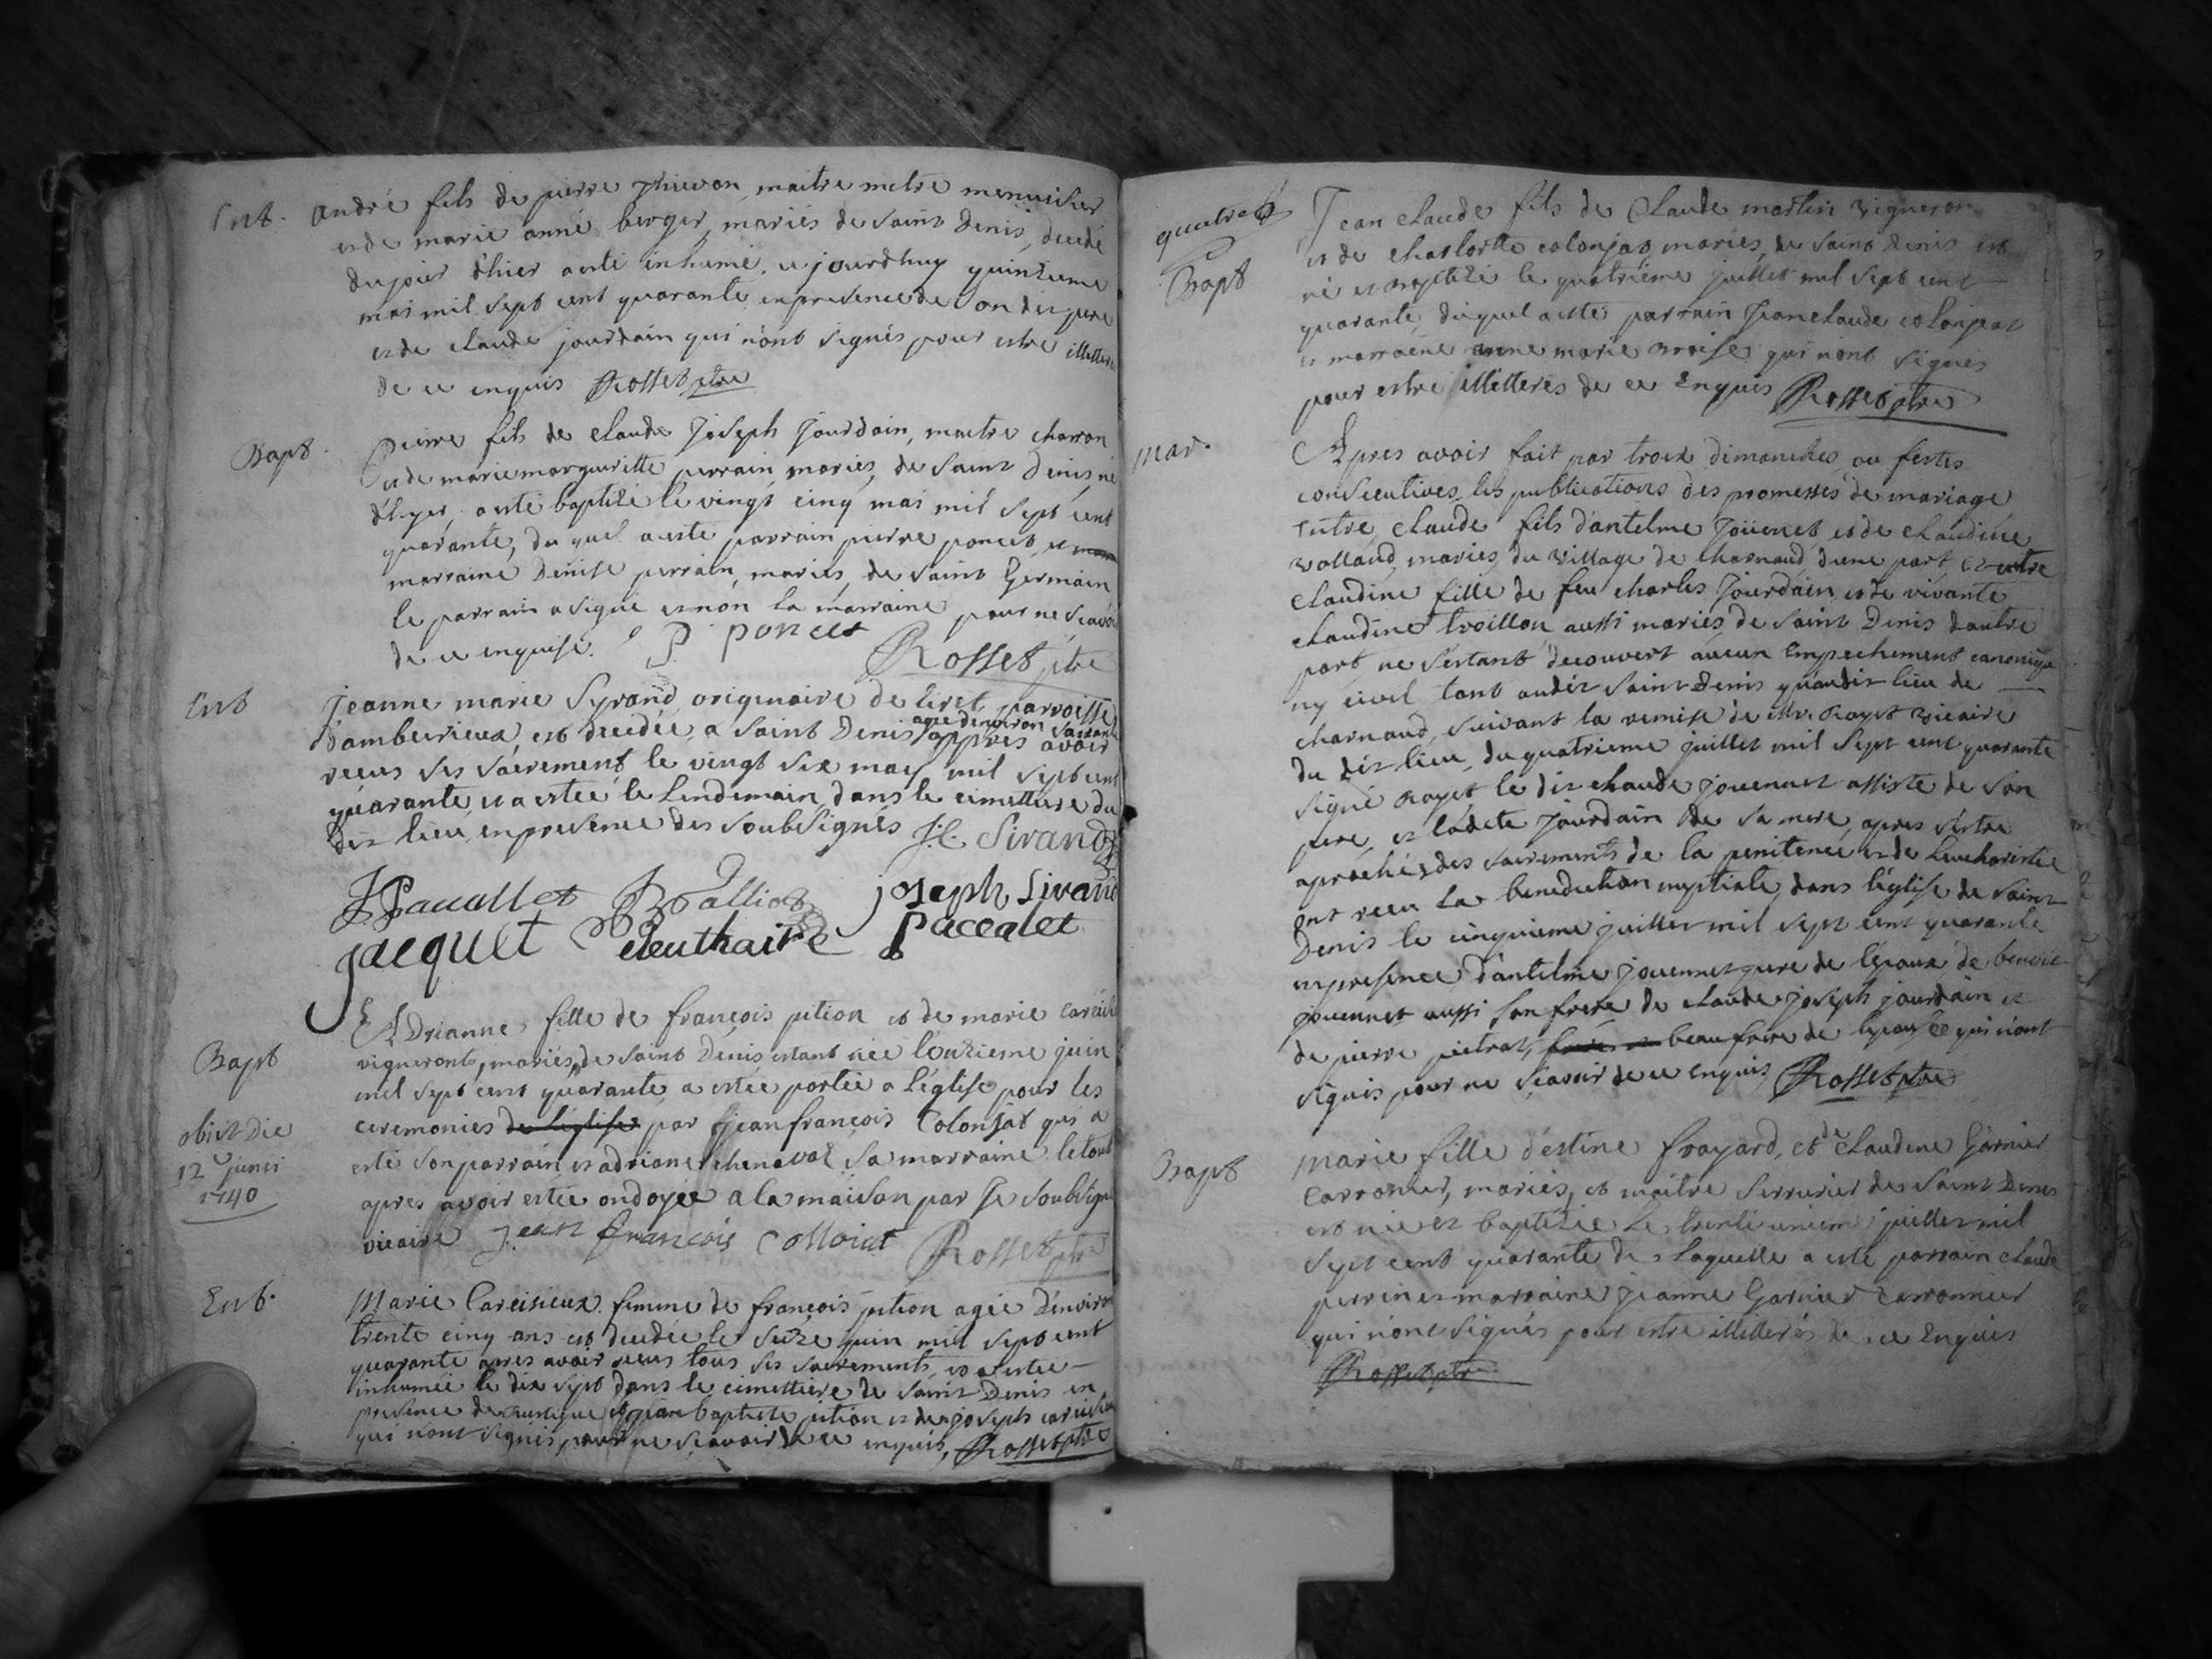 Ent. andré fils de pierre Thievon, maitre metre menuisier
et de marie anne berger, mariés de saint Denis, decedé
du jour d'hier a esté inhumé, ce jourdhuy quinzieme
mai mil sept cent quarante en presence de son dit pere
et de claude jourdain qui n'ont signés pour estre illitterés
de ce enquis Rosset ptre
Bapt. Pierre fils de claude Joseph Jourdain, maitre charron
et de marie margueritte perrain, mariés, de saint Denis, né
d'hyer, a esté baptizé le vingt cinq mai mil sept cent
quarante, du quel a esté parrain pierre poncet, et
marraine Denise perrain, mariés, de saint Germain
le parrain a signé et non la marraine pour ne scavoir
de ce enquise. P. poncet
Rosset ptre
Ent jeanne marie Syrand, originaire de tiret parroisse
d'ambeirieux, est decedée a saint Denis agée d'environ
appres avoir
receus ses sacrements le vingt six may mil sept cent
quarante, et a estée le Lendemain dans le cimettiere du
dit lieu en presence des soubsignés J.C. Sivand
J. Pacallet Balliod joseph Sivand
jacquet eleuthaire Paccalet
Bapt Adrianne fille de françois pition et de marie
vignerons, mariés, de saint Denis estant née l'onzieme juin
mil sept cent quarante, a estée portée a l'église pour les
ceremonies de l'église par jean françois Colonjat qui a
esté son parrain, et adriane chenaval sa marraine le tout
obiit die
12 junii
1740
apres avoir estée ondoyée a la maison par Je soubsigné
vicaire jean françois Collonjat Rosset ptre
Ent. Marie Careisieux femme de françois pition agée d'environ
trente cinq ans est decedée le seize juin mil sept cent
quarante apres avoir receus tous ses sacrements, et a estée
inhumée le dix sept dans le cimettiere de saint Denis en
presence de et jean baptiste pition et de joseph
qui n'ont signés pour ne scavoir de ce enquis, Rosset ptre
Jean claude fils de Claude martin vigneron
et de charlotte colonjat, mariés, de saint Denis est
Bapt né et baptizé le quatrième juillet mil sept cent
quarante, duquel a esté parrain Jean claude colonjat
et marraine anne marie qui n'ont signés
pour estre illitterés de ce Enquis Rosset ptre
Mar. Apres avoir fait par troix dimanches ou festes
consecutives les publications des promesses de mariage
entre claude fils d'antelme Joüenet et de claudine
volland, mariés du village de charnaud d'une part, et entre
claudine fille de feu charles Jourdain et de vivante
claudine troillon aussi mariés de saint Denis d'autre
part, ne s'estant decouvert aucun Empechement canonique
ny civil, tant audit saint Denis qu'audit lieu de
charnaud, suivant la remise de Mr. Rayet vicaire
du dit lieu, du quatrieme juillet mil sept cent quarante
signé Rayet le dit claude jouennet assisté de son
pere, et ladite Jourdain de sa mere, apres s'estre
aprochés des sacrements de la penitence et de Leucharistie
ont receu la benediction nuptiale, dans l'église de saint
Denis le cinquieme juillet mil sept cent quarante
en presence d'antelme jouennet pere de l'epoux de benoit
jouennet aussi son frere de claude joseph jourdain et
de pierre pietrat, beau frere de lepouse qui n'ont
signés pour ne scavoir de ce enquis, Rosset ptre
Bapt marie fille d'estine frayard, et de claudine Garnier
Carronier, mariés, et maitre serrurier de saint Denis
est née et baptisée le trente unieme juillet mil
sept cent quarante de laquelle a esté parrain claude
perrin et marraine jeanne Garnier carronnier
qui n'ont signés pour estre illitterés de ce Enquis
Rosset ptre